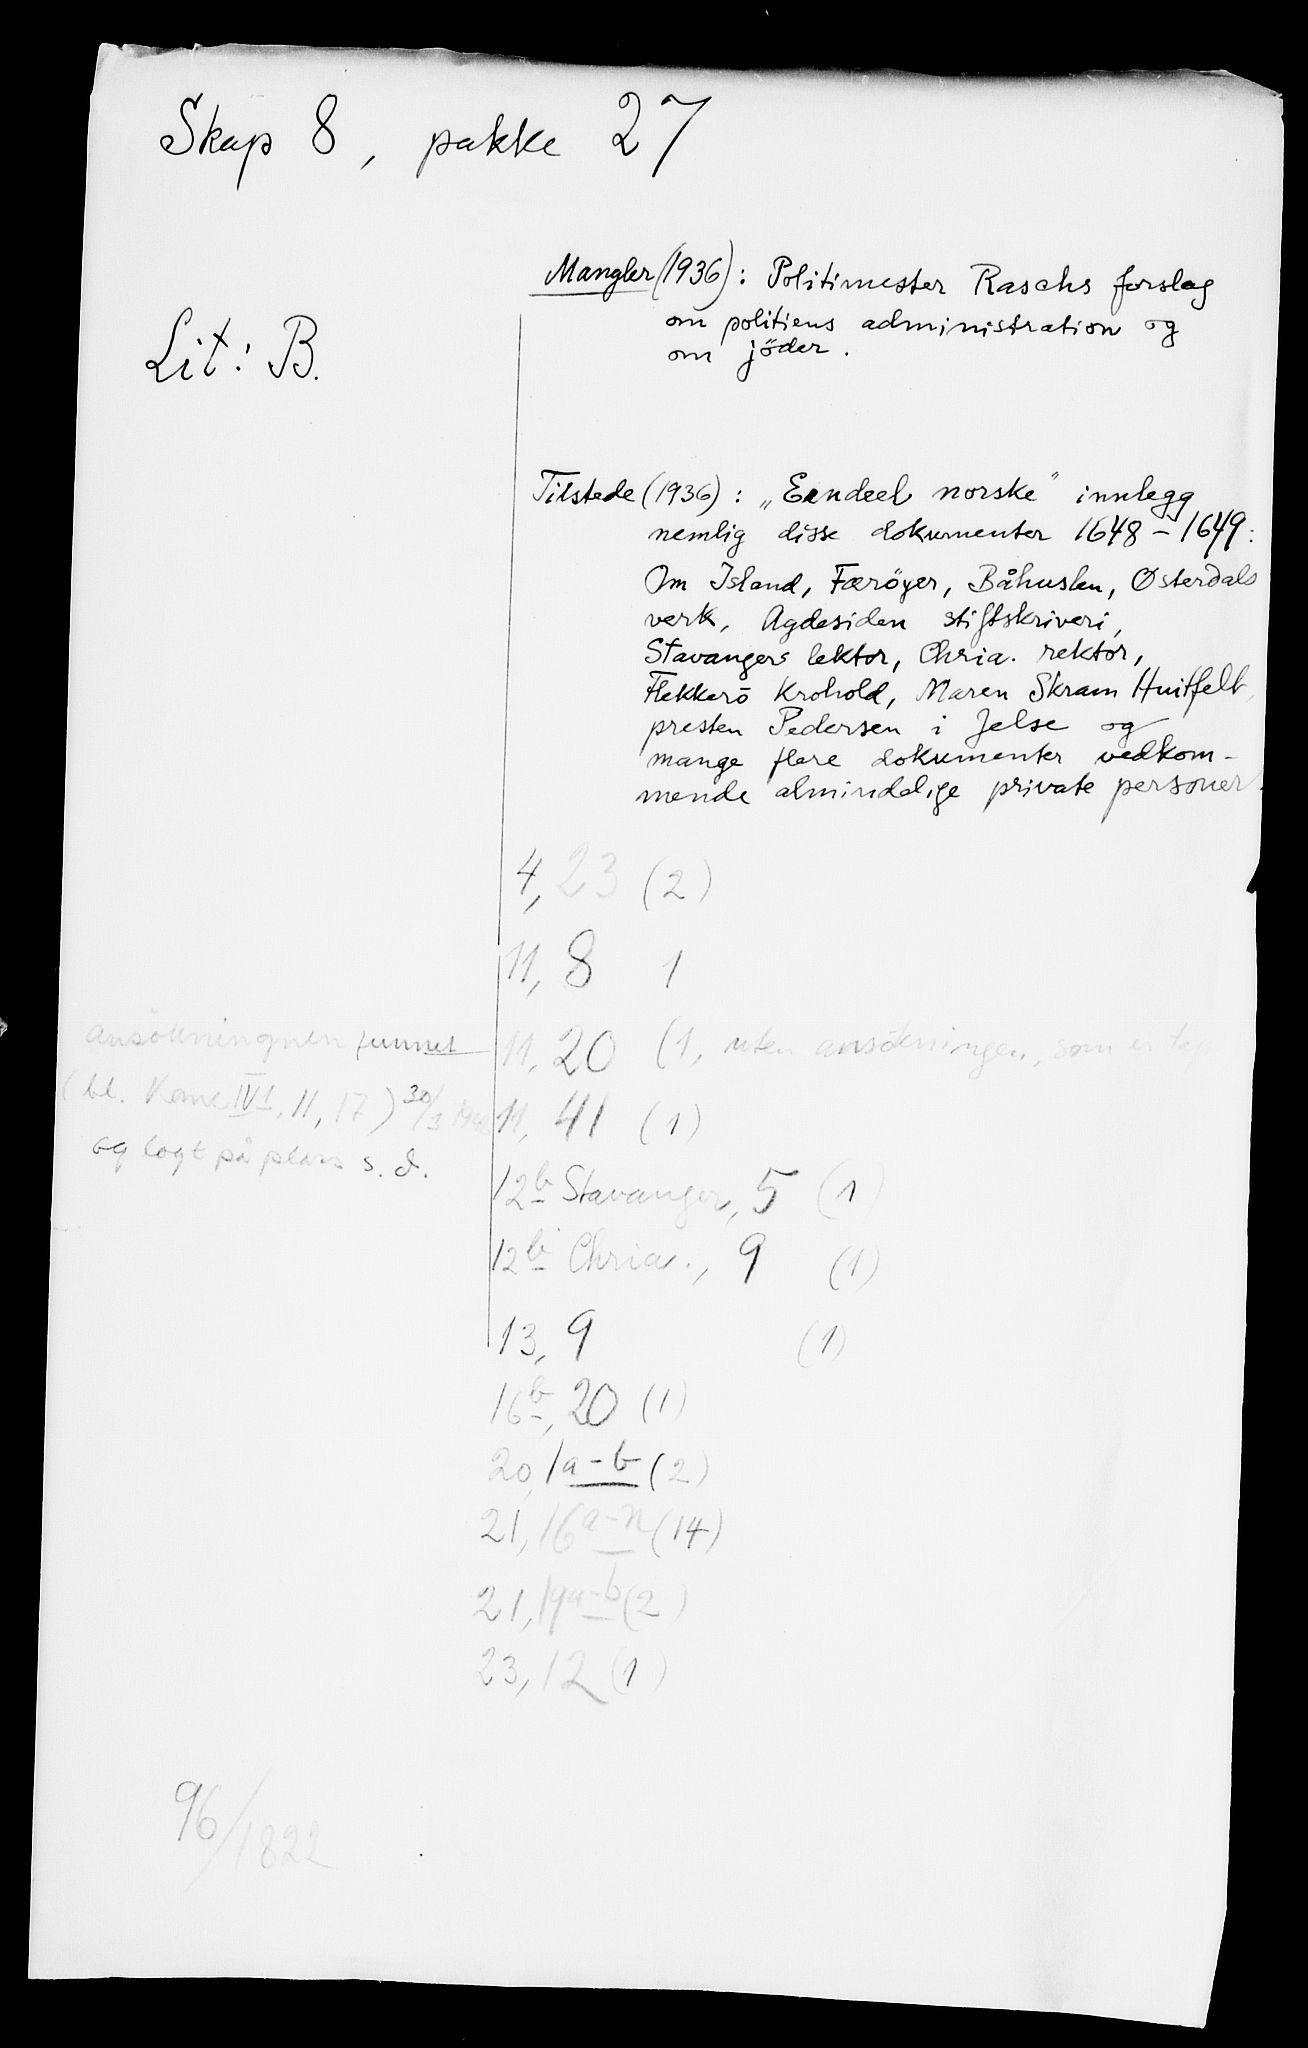 Skap 8, pakke 27
Mangler (1936): Politimester Raschs forslag
om politiens administration og
om jöder.
Lit: B.
Tilstede (1936): „Eendeel norske" innlegg
nemlig disse dokumenter 1648-1649:
Om Island, Færöyer, Båhuslen, Østerdals
verk, Agdesiden stiftskriveri,
Stavangers lektor, Chria. rektor,
Flekkerö Krohold, Maren Skram Huitfelt,
presten Pedersen i Jelse og
mange flere dokumenter vedkom-
mende almindelige private personer.
4, 23 (2)
11, 8 1
11, 20 (1, uten ansökningen, som er
ansökningnen funnet
(bl. IV 1, 11, 17) 30/3
og lagt på plass s. d.
11, 41 (1)
12b Stavanger, 5 (1)
12b Chria., 9 (1)
13, 9 (1)
16b, 20 (1)
20, 1a-b (2)
21, 16a-n (14)
21, 19a-b (2)
23, 12 (1)
96/1822